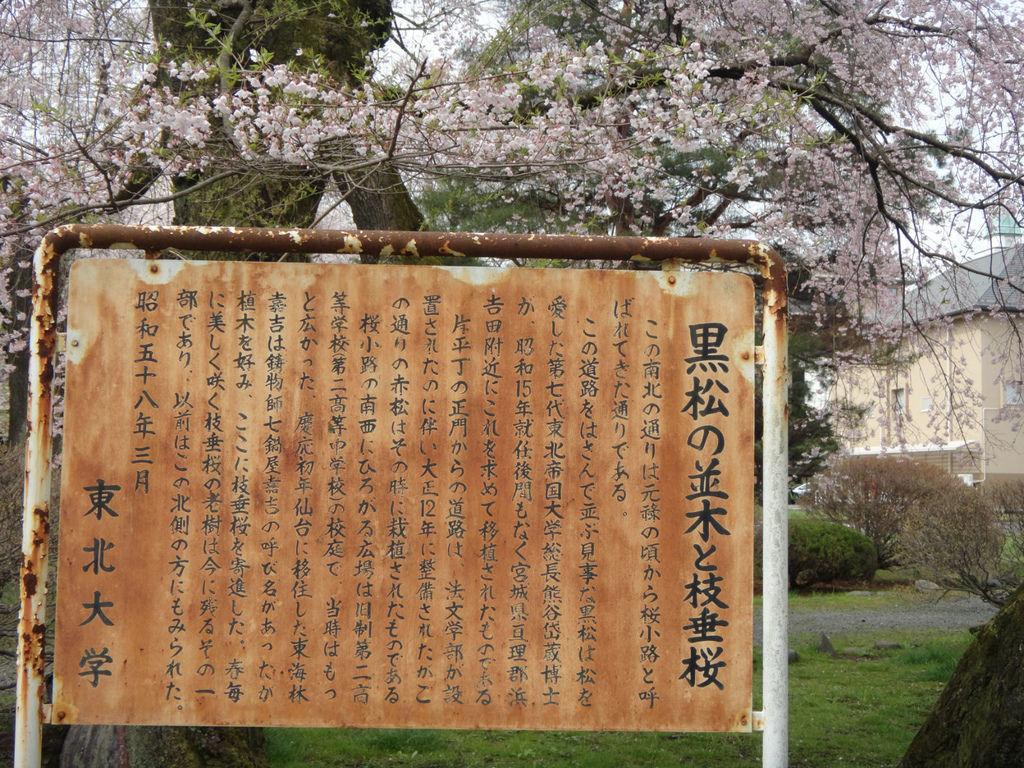 黒松の並木と枝垂桜
この南北の通りは元禄の頃から桜小路と呼
ばれてきた通りである。
この道路をはさんで並ぶ見事な黒松は松を
愛した第七代東北帝国大学総長熊谷岱蔵博士
が、昭和15年就任後間もなく宮城県亘理郡浜
吉田附近にこれを求めて移植されたものである
片平丁の正門からの道路は、法文学部が設
置されたのに伴い大正12年に整備されたがこ
の通りの赤松はその時に栽植されたものである
桜小路の南西にひろがる広場は旧制第二高
等学校第二高等中学校の校庭で、当時はもっ
と広かった。慶応初年仙台に移住した東海林
嘉吉は鋳物師七鍋屋嘉吉の呼び名があったが
植木を好み、ここに枝垂桜を寄進した。春毎
に美しく咲く枝垂桜の老樹は今に残るその一
部であり、以前はこの北側の方にもみられた。
昭和五十八年三月
東北大学